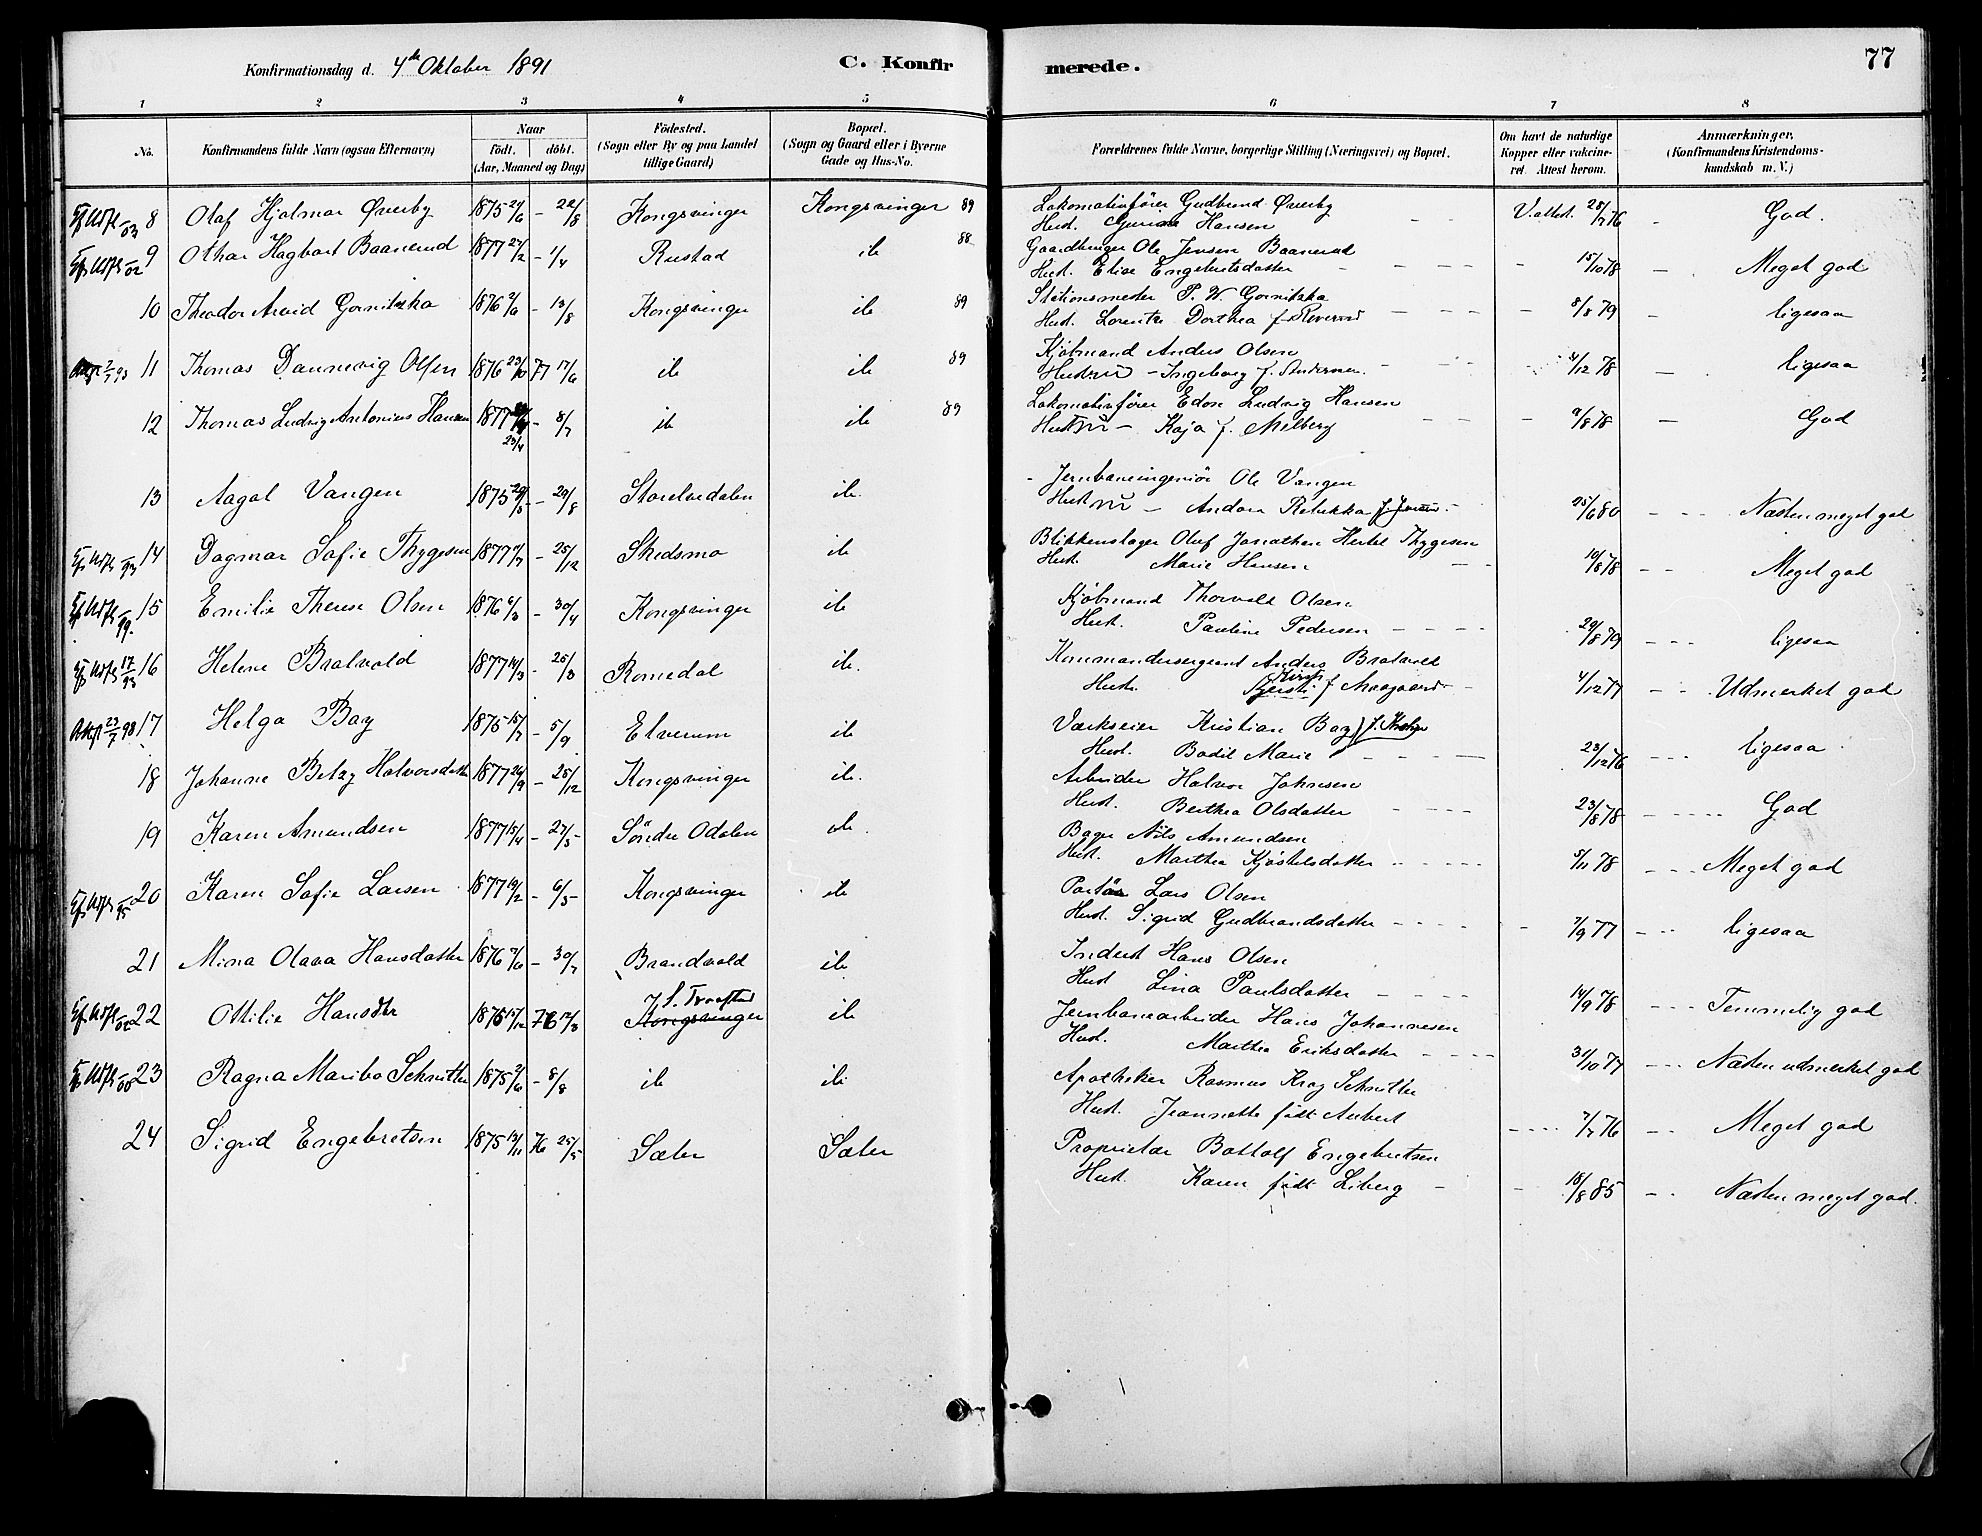 Konfirmationsdag d. 4de Oktober 1891 C. Konfir merede. 77
1 2 3 4 5 6 7 8
No. Konfirmandens fulde Navn (ogsaa Efternavn) Naar födt. döbt. (Aar, Maaned og Dag) Födested. (Sogn eller By og paa Landet tillige Gaard) Bopæl. (Sogn og Gaard eller i Byerne Gade og Hus-No. Forældrenes fulde Navne, borgerlige Stilling (Næringsvei) og Bopæl. Om havt de naturlige Kopper eller vakcineret. Attest herom. Anmærkninger. (Konfirmandens Kristendomskundskab m. V.)
8 Olaf Hjalmar Øverby 1875 - 22/8 Kongsvinger Kongsvinger 89 Lokomotivfører Gudbrand Øverby V. attest. God.
Hust. Hansen
9 Othar Hagbart Baanerud 1877 27/2 - 1/4 Rustad ib 88 Gaardbruger Ole Jensen Baanerud
Hust. Elise Engebretsdatter 15/10 78 Meget god
10 Theodor Arvid Gornitzka 1876 - 13/8 Kongsvinger ib 89 Stationsmester P. W. Gornitzka
Hust. Lorentze Dorthea f. 8/8 79 ligesaa
11 Thomas Dannevig Olsen 1876 77 17/6 ib ib 89 Kjøbmand Anders Olsen
Hustru - Ingeborg f. Andersen 4/12 78 ligesaa
12 Thomas Ludvig Antonius Hansen 1877 23/4 - 8/7 ib ib 89 Lokomotivfører Edor Ludvig Hansen
Hustru - Kaja f. Melberg 9/8 78 God
13 Aagot Vangen 1875 29/5 - 29/8 Storelvedalen ib. Jernbaneingeniør Ole Vangen
Hustru - Andora Rebekka f. 25/6 80 Næsten meget god
14 Dagmar Sofie Thygesen 1877 - 25/12 Skedsmo ib Blikkenslager Oluf Jonathan Hertel Thygesen
Hust. Marie Hansen 10/8 78 Meget god
15 Emilie Therese Olsen 1876 6/3 - 30/4 Kongsvinger ib Kjøbmand Thorvald Olsen
Hust. Pauline Pedersen 29/8 79 ligesaa
16 Helene Bratvold 1877 14/3 - 25/3 Romedal ib. Kommandersergeant Anders Bratvold
Hust. Kirsti f. Aaagaard 4/12 77 Udmerket god
17 Helga Bay 1875 15/7 - 5/9 Elverum ib Værkseier Kristian Bay
Hust. Bodil Marie 23/12 76 ligesaa
18 Johanne Betzy Halvorsdatter 1877 26/9 - 25/12 Kongsvinger ib. Arbeider Halvor Johnsen
Hust. Berthea Olsdatter 23/8 78 God
19 Karen Amundsen 1877 15/4 - 27/5 Søndre Odalen ib. Bager Nils Amundsen
Hust. Marthea Kjøstelsdatter 5/11 78 Meget god
20 Karen Sofie Larsen 1877 19/2 - 6/5 Kongsvinger ib Portør Lars Olsen
Hust. Sigrid Gudbrandsdatter 7/9 77 ligesaa
21 Mina Olava Hansdatter 1876 - 30/7 Brandvold ib Inderst Hans Olsen
Hust Lina Paulsdatter 14/9 78 Temmelig god
22 Ottilie Hansdtr 1875 15/12 76 12/3 S. Trøgstad Kongsvinger ib Jernbanearbeider Hans Johannesen
Hust. Marthea Eriksdatter 31/10 77 Næsten udmerket god
23 Ragna Maribo Schnitler 1875 2/6 - 8/8 ib ib. Apotheker Rasmus Krag Schnitler
Hust. Jeannette født Aubert 7/7 76 Meget god
24 Sigrid Engebretsen 1875 13/11 76 25/5 Sæter Sæter Proprietær Bottolf Engebretsen
Hust. Karen født Liberg 18/8 85 Næsten meget god.